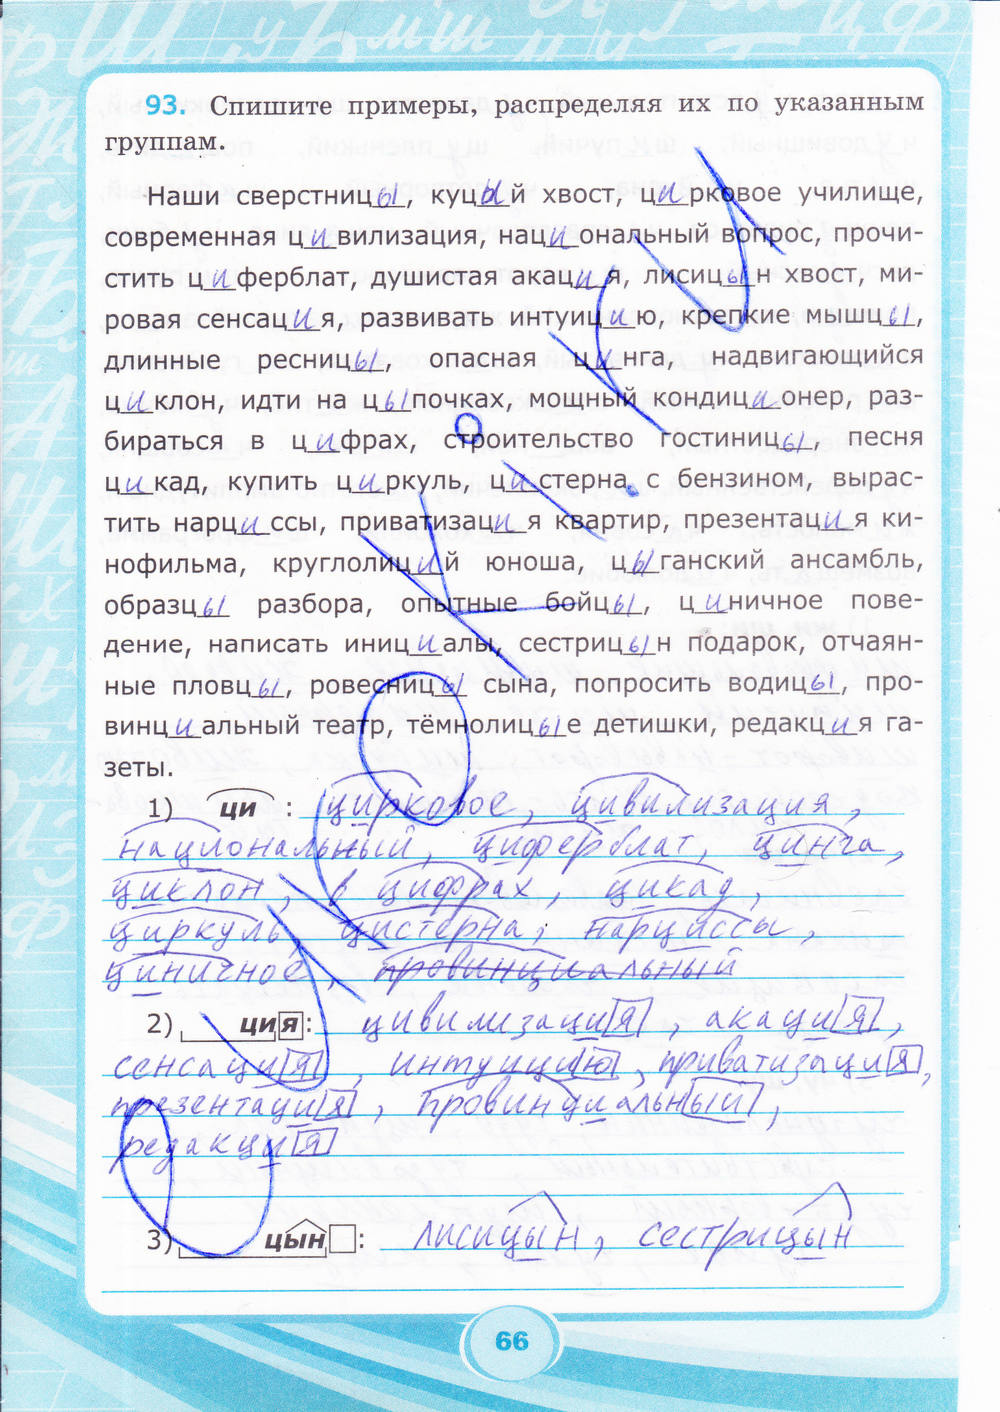 93. Спишите примеры, распределяя их по указанным
группам.
Наши сверстницы, куцый хвост, цирковое училище,
современная цивилизация, национальный вопрос, прочи-
стить циферблат, душистая акация, лисицын хвост, ми-
ровая сенсация, развивать интуицию, крепкие мышцы,
длинные ресницы, опасная цинга, надвигающийся
циклон, идти на цыпочках, мощный кондиционер, раз-
бираться в цифрах, строительство гостиницы, песня
цикад, купить циркуль, цистерна с бензином, вырас-
тить нарциссы, приватизация квартир, презентация ки-
нофильма, круглолиций юноша, цыганский ансамбль,
образцы разбора, опытные бойцы, циничное пове-
дение, написать инициалы, сестрицын подарок, отчаян-
ные пловцы, ровесницы сына, попросить водицы, про-
винциальный театр, тёмнолицые детишки, редакция га-
зеты.
1) ци : цирковое, цивилизация,
национальный, циферблат, цинга,
циклон, в цифрах, цикад,
циркуль, цистерна, нарциссы,
циничное, провинциальный
2) ция: цивилизация, акация,
сенсация, интуицию, приватизация,
презентация, провинциальный,
редакция
3) цын : лисицын, сестрицын
66